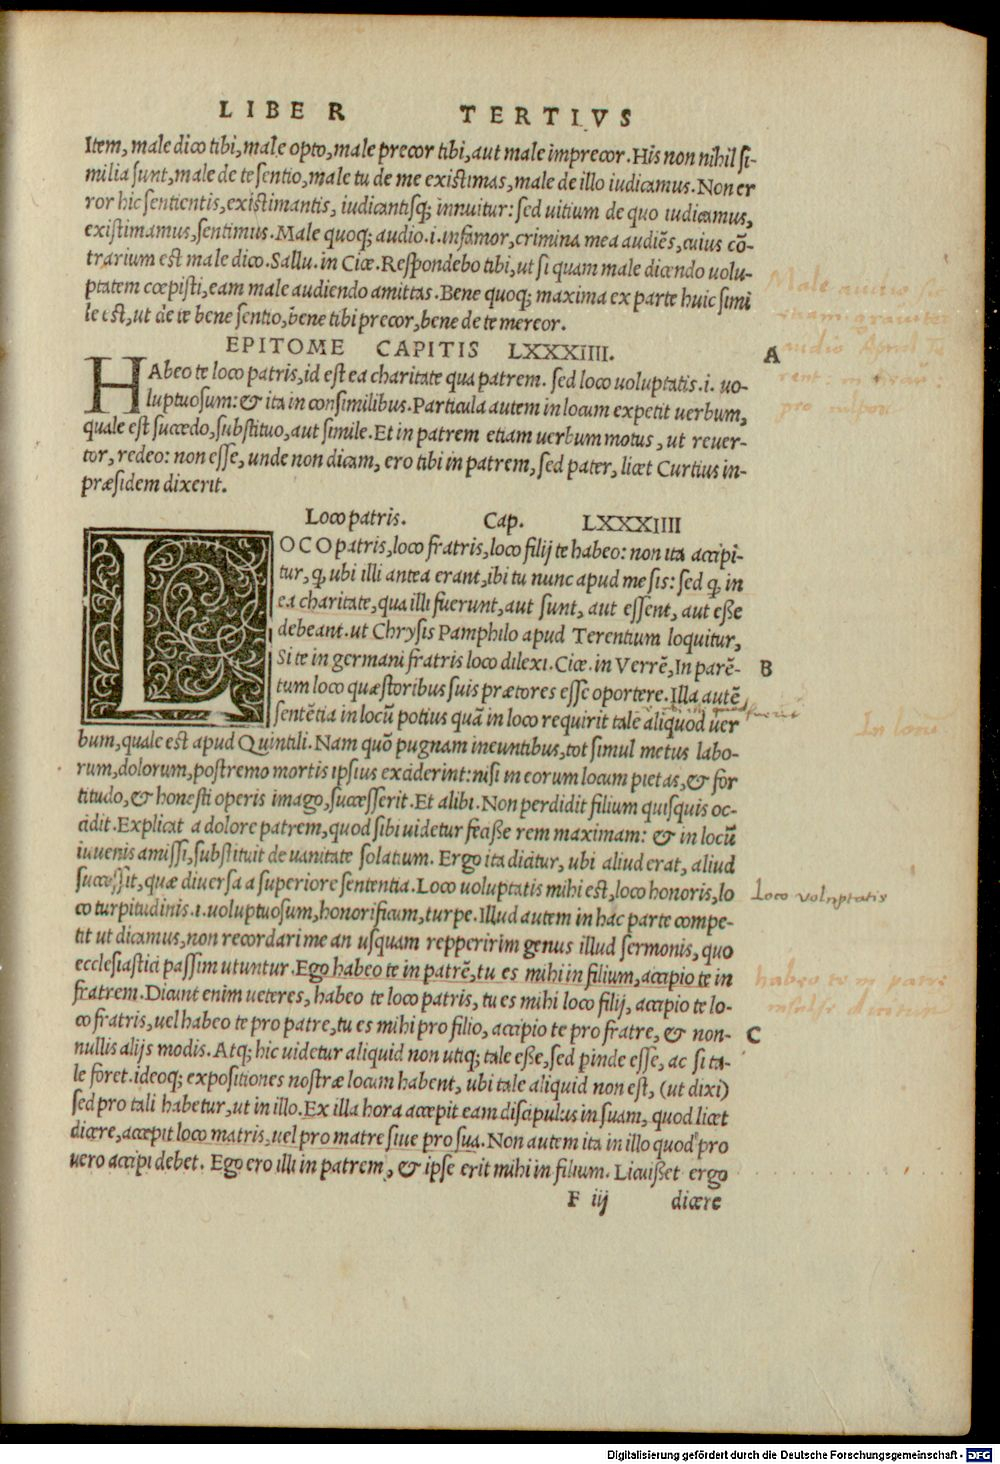 LIBER TERTIVS
Item, male dico tibi, male opto, male precor tibi, aut male imprecor. His non nihil si-
milia sunt, male de te sentio, male tu de me existimas, male de illo iudicamus. Non er
ror hic sentientis, existimantis, iudicantisq; innuitur: sed uitium de quo iudicamus,
existimamus, sentimus. Male quoq; audio .i. infamor, crimina mea audiēs, cuius cō-
trarium est male dico. Sallu. in Cice. Respondebo tibi, ut si quam male dicendo uolu-
ptatem coepisti, eam male audiendo amittas. Bene quoq; maxima ex parte huic simi
le est, ut de te bene sentio, bene tibi precor, bene de te mereor.
EPITOME CAPITIS LXXXIIII.
A
HAbeo te loco patris, id est ea charitate qua patrem. sed loco uoluptatis .i. uo-
luptuosum: & ita in consimilibus. Particula autem in locum expetit uerbum,
quale est succedo, substituo, aut simile. Et in patrem etiam uerbum motus, ut reuer-
tor, redeo: non esse, unde non dicam, ero tibi in patrem, sed pater, licet Curtius in-
præsidem dixerit.
Loco patris. Cap. LXXXIIII
LOCO patris, loco fratris, loco filij te habeo: non ita accipi-
tur, q, ubi illi antea erant, ibi tu nunc apud me sis: sed q, in
ea charitate, qua illi fuerunt, aut sunt, aut essent, aut eße
debeant. ut Chrysis Pamphilo apud Terentium loquitur,
Si te in germani fratris loco dilexi. Cice. in Verrē, In parē-
B
tum loco quæstoribus suis prætores esse oportere. Illa autē
sentētia in locū potius quā in loco requirit tale aliquod uer
In locū
bum, quale est apud Quintili. Nam quō pugnam ineuntibus, tot simul metus labo-
rum, dolorum, postremo mortis ipsius exciderint: nisi in eorum locum pietas, & for
titudo, & honesti operis imago, successerit. Et alibi. Non perdidit filium quisquis oc-
cidit. Explicat a dolore patrem, quod sibi uidetur feciße rem maximam: & in locū
iuuenis amissi, substituit de uanitate solatium. Ergo ita dicitur, ubi aliud erat, aliud
successit, quæ diuersa a superiore sententia. Loco uoluptatis mihi est, loco honoris, lo
Loco voluptatis
co turpitudinis .i. uoluptuosum, honorificum, turpe. Illud autem in hac parte compe-
tit ut dicamus, non recordari me an usquam repperirim genus illud sermonis, quo
ecclesiastici passim utuntur. Ego habeo te in patrē, tu es mihi in filium, accipio te in
habeo te in patrē
fratrem. Dicunt enim ueteres, habeo te loco patris, tu es mihi loco filij, accipio te lo-
dicitur
co fratris, uel habeo te pro patre, tu es mihi pro filio, accipio te pro fratre, & non-
C
nullis alijs modis. Atq; hic uidetur aliquid non utiq; tale eße, sed pinde esse, ac si ta-
le foret. ideoq; expositiones nostræ locum habent, ubi tale aliquid non est, (ut dixi)
sed pro tali habetur, ut in illo. Ex illa hora accepit eam discipulus in suam, quod licet
dicere, accepit loco matris, uel pro matre siue pro sua. Non autem ita in illo quod pro
uero accipi debet. Ego ero illi in patrem, & ipse erit mihi in filium. Licuißet ergo
F iij dicere
Digitalisierung gefördert durch die Deutsche Forschungsgemeinschaft - DFG